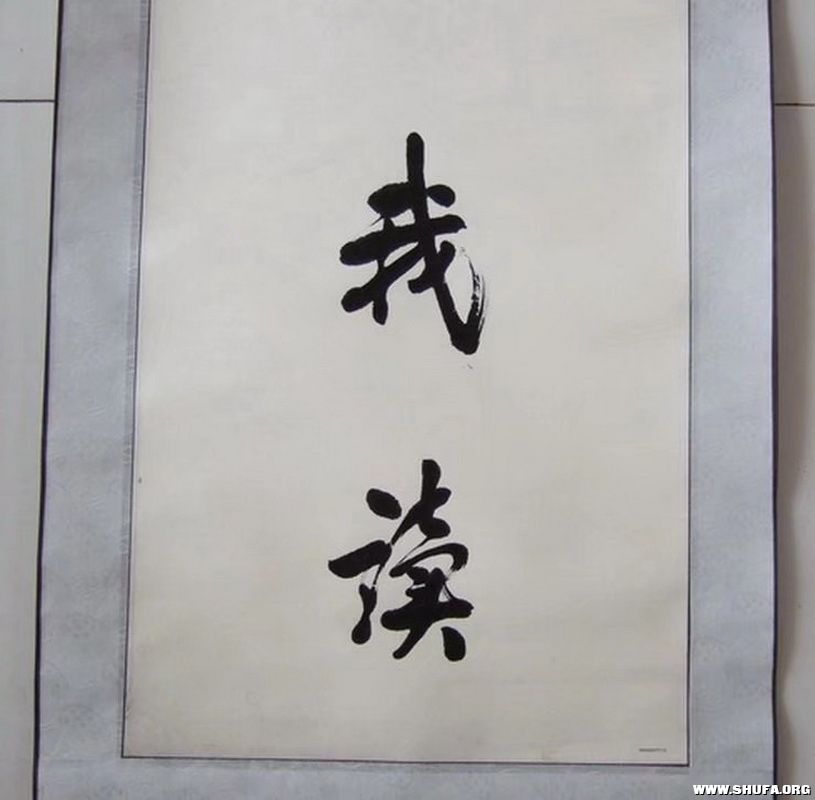 我
读
WWW.SHUFA.ORG